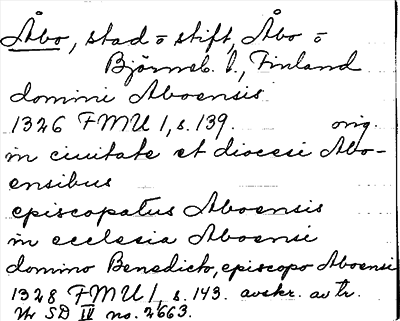 Åbo, stad o stift, Åbo o
Björneb. l., Finland
domini Aboensis
1326 FMU I, s. 139. orig.
in ciuitate et diocesi Abo-
ensibus
episcopatus Aboensis
in ecclesia Aboensi
domino Benedicto, episcopo Aboensi
1328 FMU I, s. 143. avskr. av tr.
ur SD IV no. 2663.